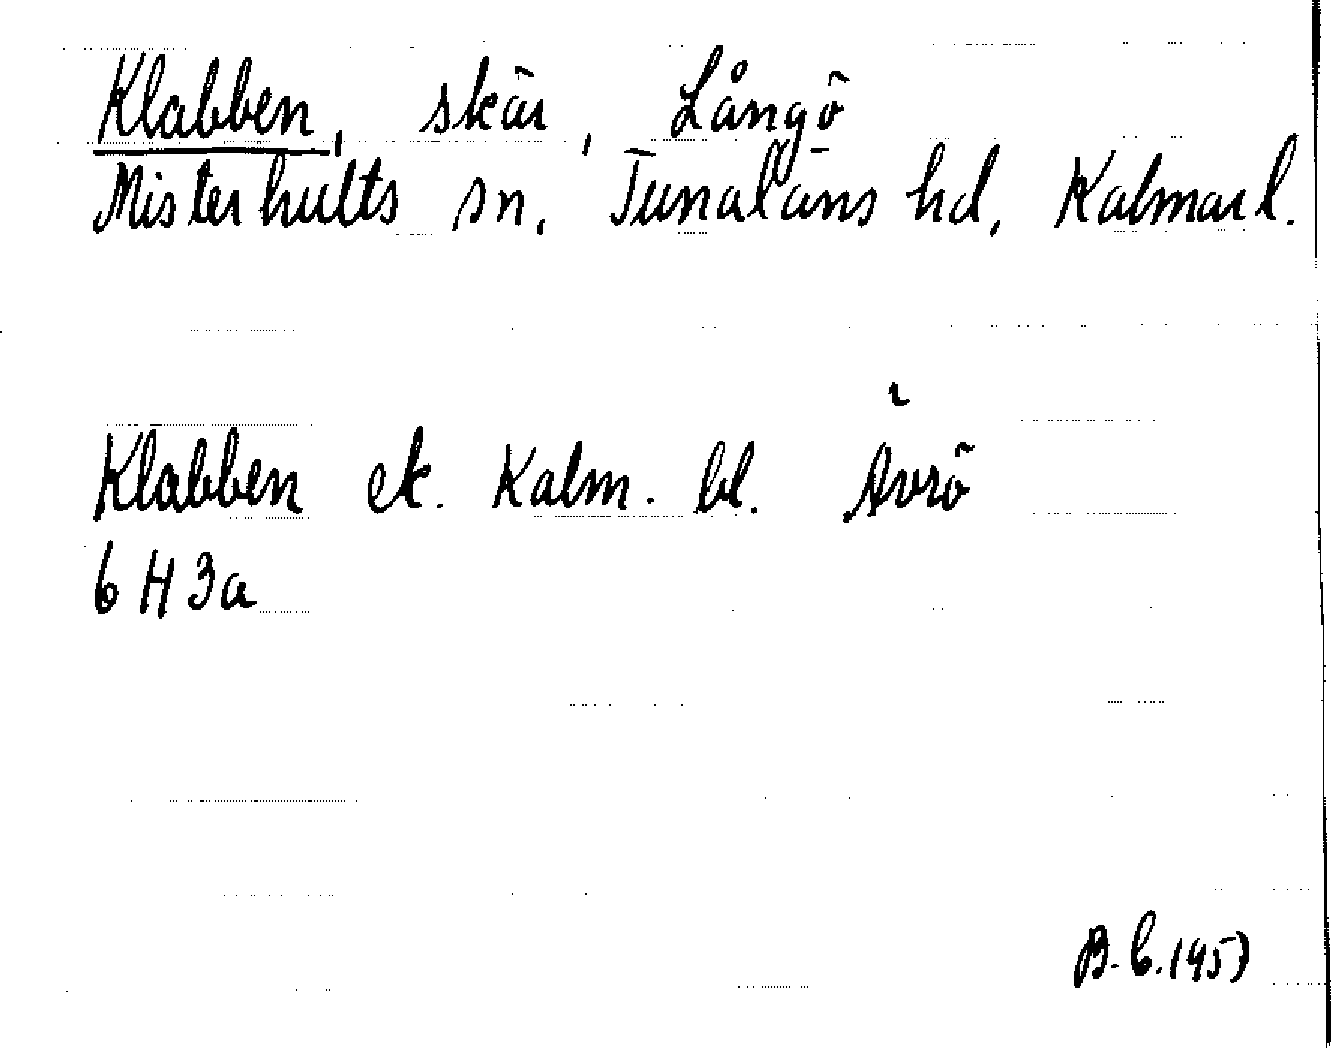 Klabben, skär, Långö
Misterhults sn, Tunaläns hd, Kalmar l.
Klabben ek. Kalm. bl. Ävrö
6 H 3a
B. C. 1957